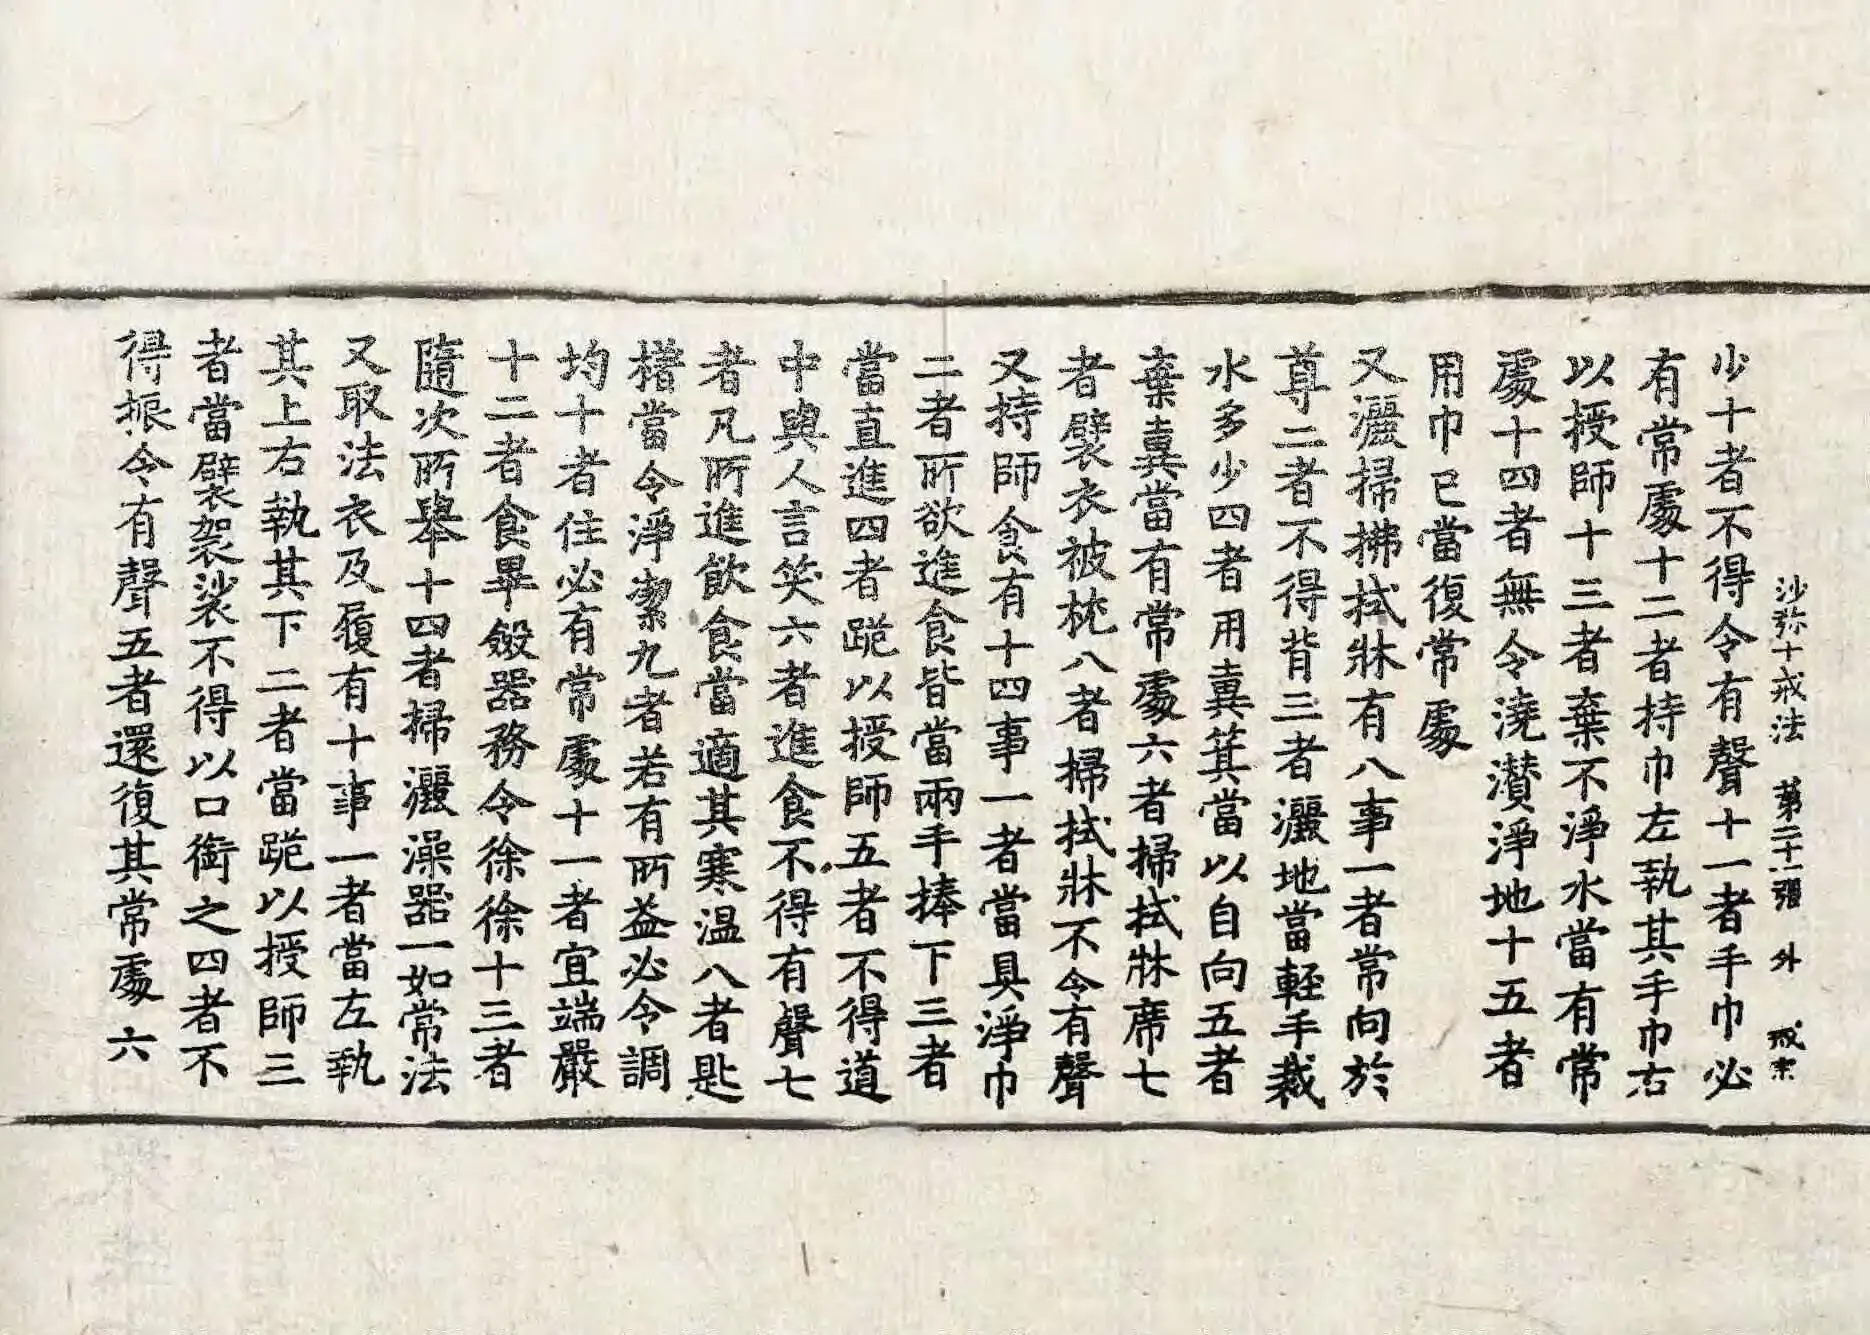 沙弥十戒法　第二十一張　外　戒宗
少十者不得令有聲十一者手巾必
有常處十二者持巾左執其手巾右
以授師十三者棄不淨水當有常
處十四者無令澆濽淨地十五者
用巾已當復常處
又灑掃拂拭牀有八事一者常向於
尊二者不得背三者灑地當輕手裁
水多少四者用糞箕當以自向五者
棄糞當有常處六者掃拭牀席七
者襞衣被枕八者掃拭牀不令有聲
又持師食有十四事一者當具淨巾
二者所欲進食皆當兩手捧下三者
當直進四者跪以授師五者不得道
中與人言笑六者進食不得有聲七
者凡所進飲食當適其寒温八者匙
楮當令淨潔九者若有所益必令調
均十者住必有常處十一者宜端嚴
十二者食畢斂器務令徐徐十三者
隨次所舉十四者掃灑澡器一如常法
又取法衣及履有十事一者當左執
其上右執其下二者當跪以授師三
者當襞袈裟不得以口銜之四者不
得振令有聲五者還復其常處六